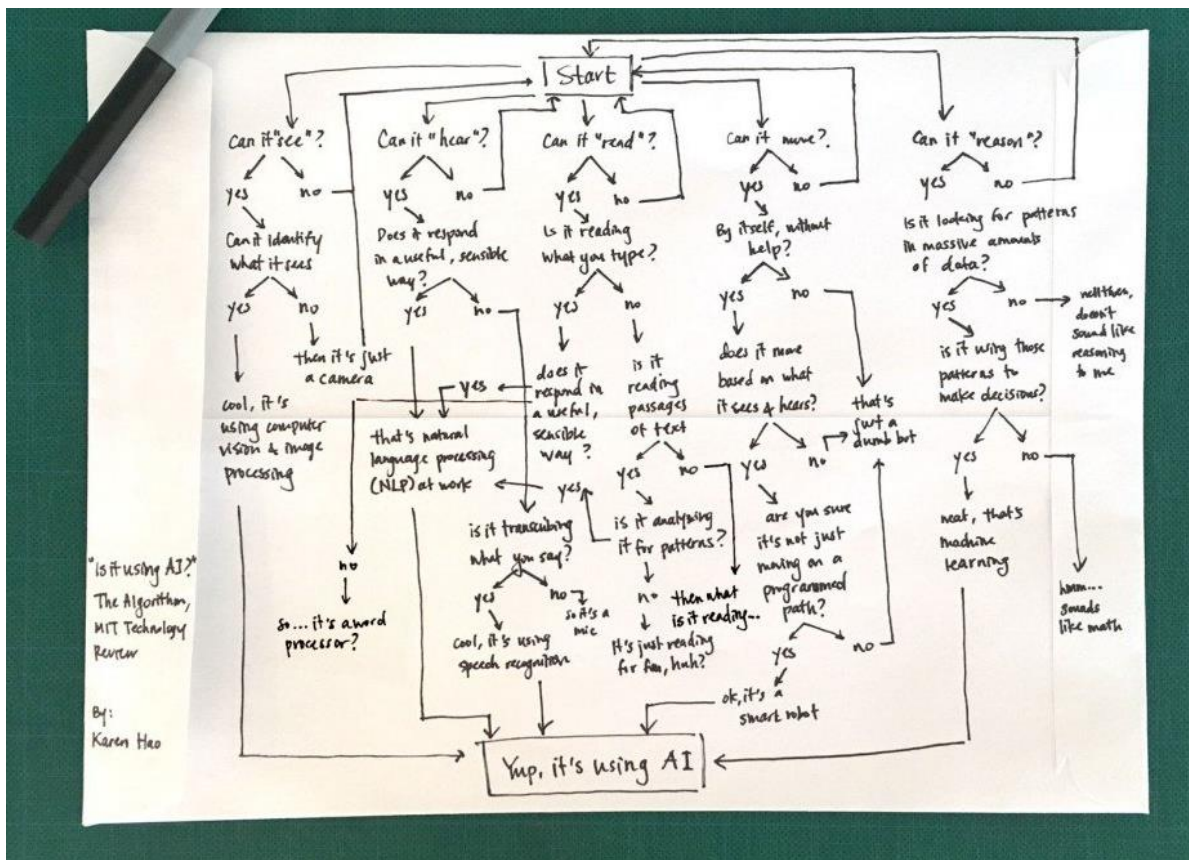 Start
Can it "see"?
yes
no
Can it identify
what it sees
yes
no
then it's just
a camera
cool, it's
using computer
vision & image
processing
Can it "hear"?
yes
no
Does it respond
in a useful, sensible
way?
yes
no
that's natural
language processing
(NLP) at work
is it transcribing
what you say?
yes
no
so it's a
mic
cool, it's using
speech recognition
Can it "read"?
yes
no
Is it reading
what you type?
yes
no
does it
respond in
a useful,
sensible
way?
yes
no
so... it's a word
processor?
is it
reading
passages
of text
yes
no
is it analyzing
it for patterns?
yes
no
It's just reading
for fun, huh?
then what
is it reading...
Can it move?
yes
no
By itself, without
help?
yes
no
does it move
based on what
it sees & hears?
yes
no
that's
just a
dumb bot
are you sure
it's not just
moving on a
programmed
path?
yes
no
ok, it's a
smart robot
Can it "reason"?
yes
no
Is it looking for patterns
in massive amounts
of data?
yes
no
doesn't
sound like
reasoning
to me
is it using those
patterns to
make decisions?
yes
no
neat, that's
machine
learning
hmm...
sounds
like math
Yup, it's using AI
"Is it using AI?"
The Algorithm,
MIT Technology
Review
By:
Karen Hao